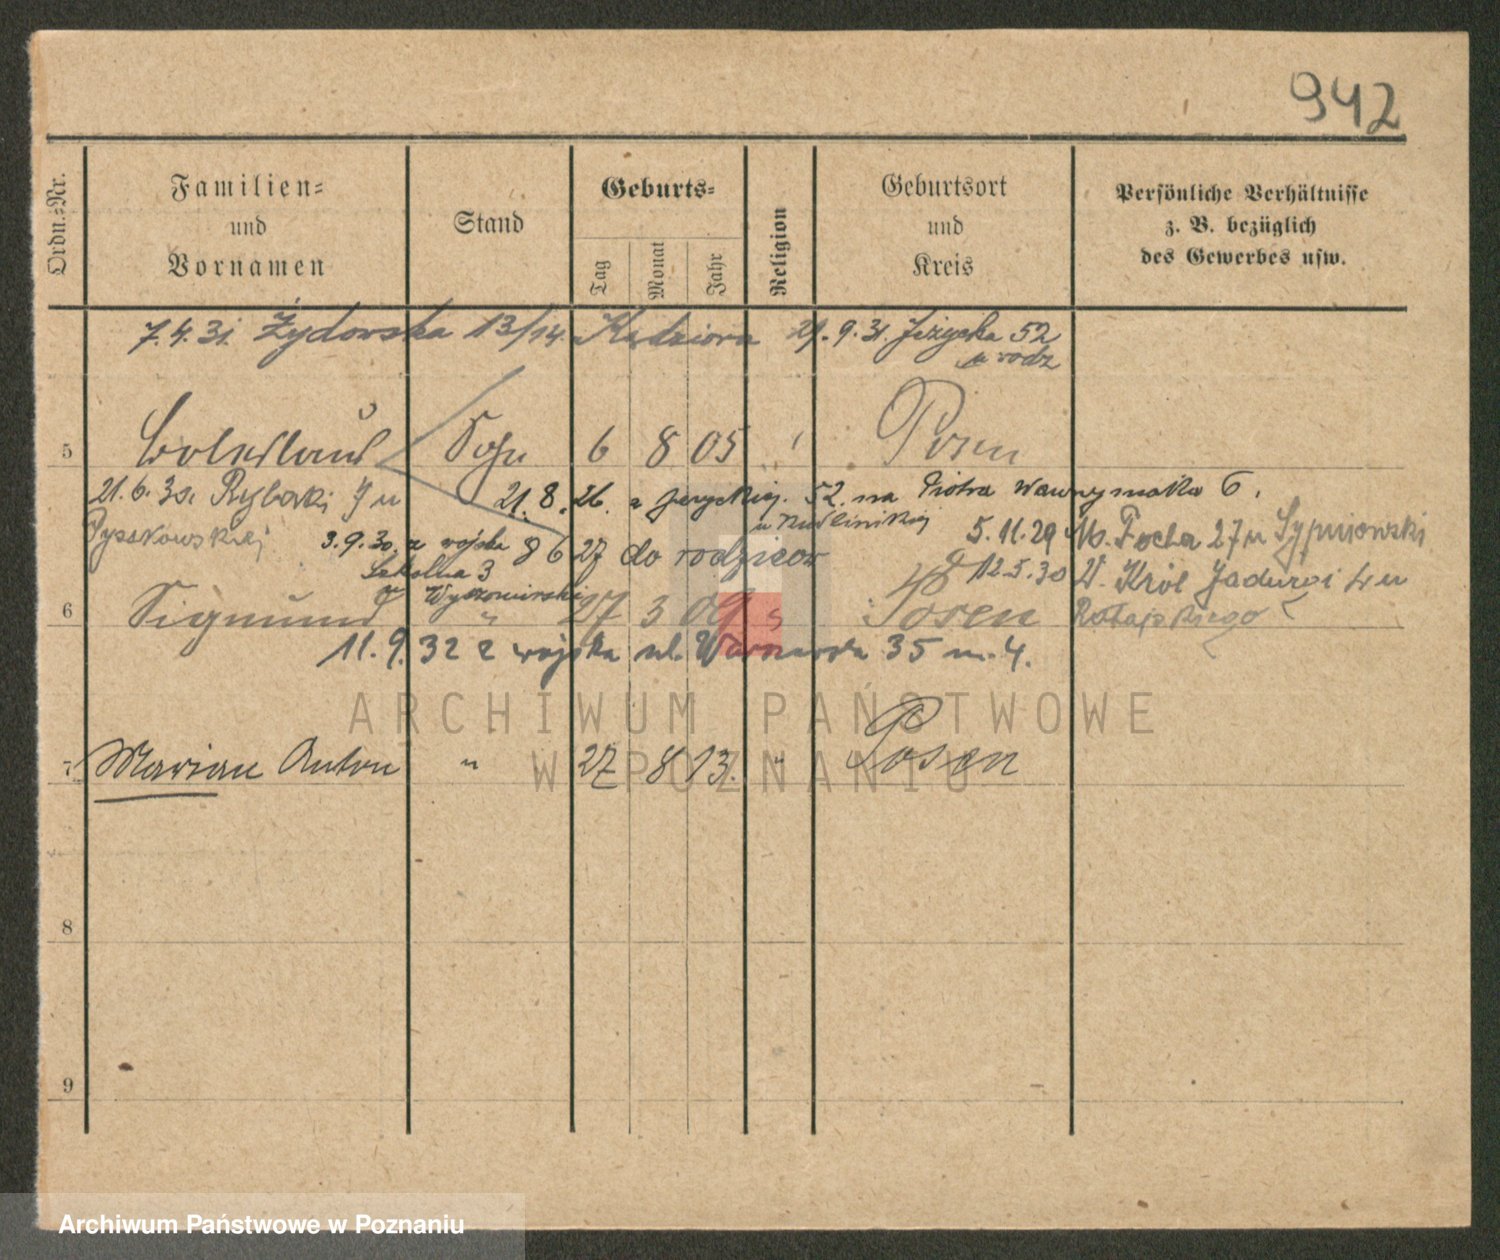 942
Ordn.-Nr.
Familien-
und
Vornamen
Stand
Geburts-
Tag
Monat
Jahr
Religion
Geburtsort
und
Kreis
Persönliche Verhältnisse
z. B. bezüglich
des Gewerbes usw.
7.4.31. Żydowska 13/14. Kędziora 21.9.31. Jeżycka 52
u rodz
5 Boleslaus Sohn 6 8 05 Posen
21.6.30. Rybaki 7 u 21.8.26. z Jeżyckiej. 52. na Piotra Wawrzyniaka 6.
u Kudlińskiej
5.11.29 M. Focha 27 u Sypniowski
3.9.30. z wojska 8 6 27 do rodziców
Szkolna 3
12.5.30 W. Król Jadwigi
u Wyszomirski
6 Sigmund " 27 3 09 Posen
11.9.32 z wojska ul. Warszawska 35 m. 4.
7 Marian Anton " 27 8 13. " Posen
8
9
ARCHIWUM PAŃSTWOWE
W POZNANIU
Archiwum Państwowe w Poznaniu